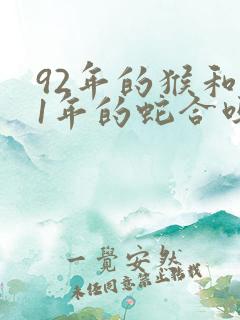 92年的猴和
1年的蛇合
一覺安然
未经同意禁止转载